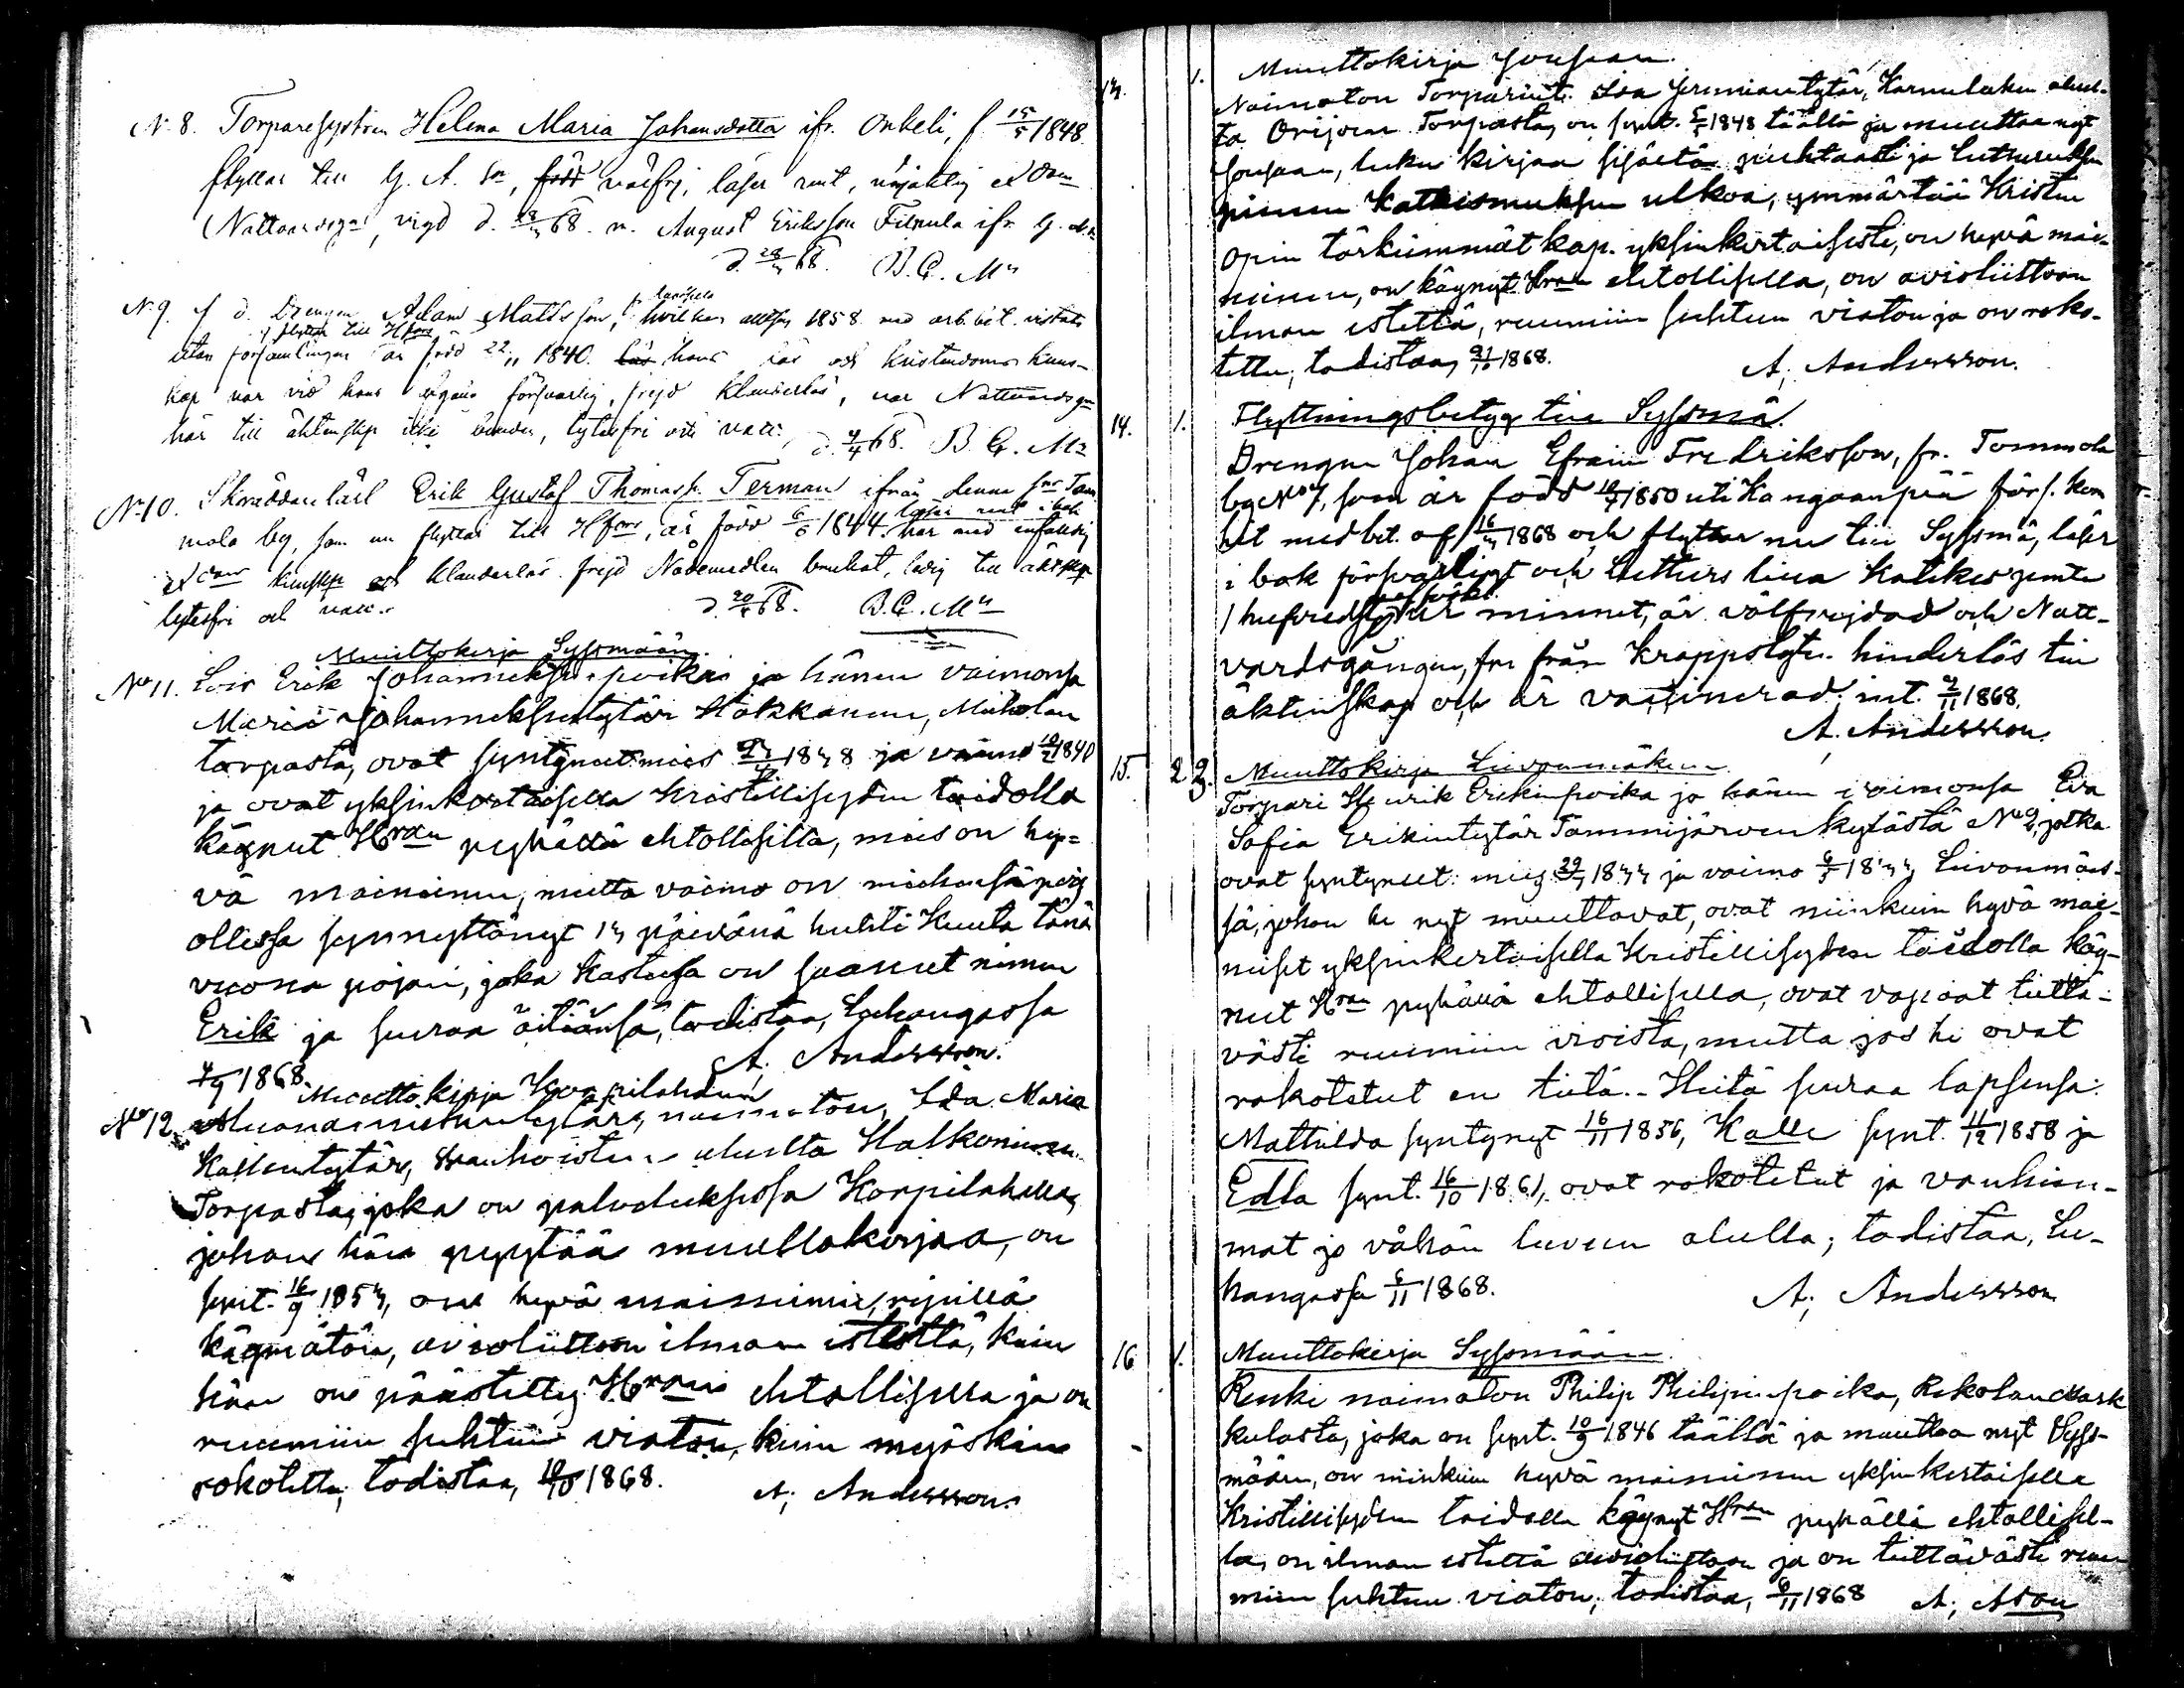 N. 8. Torparesystern Helena Maria Johansdotter ifr. Onkeli, f 15/5 1848.
flyttar till G. A. Sn, född välfrj, läser rent, nöjaktig Xdom
Nattvardsg, vigd d. 68. m. August Eriksson Filpula ifr. G. A.
d. 28/ 68. B. G. Mn
N. 9. f d. Drengen Adam Mattsson, hvilken 1858 med arb. bet. vistats
flyttar till Hfors
utan församlingen är född 22/11 1840. hans läs och kristendoms kuns-
kap var vid hans afgång försvarlig, frejd klanderlös, var Nattvardsg
här till äktenskp icke bunden, lytesfri och vacc. d. 4/4 68. B. G. Mn
No 10. Skräddarelärl Erik Gustaf Thomass. Terman ifrån denna Tom
läser rent i bok
mola by, som nu flyttar till Hfors, är född 6/5 1844. har med enfaldig
Xdoms kunskp och klanderlös frejd Nådemedlen brukat, ledig till äktskp
lytesfri och vacc. d. 20/ 68. B. G. Mn
Muuttokirja Syssmään.
No 11. Lois Erik Johanneksenpoika ja hänen vaimonsa
Maria Johanneksentytär Hakkanen, Mikolan
torpasta, ovat syntyneet mies 18 8 ja vaimo 10/ 1840
ja ovat yksinkertaisella Kristillisyden taidolla
käynut Hran pyhällä ehtollisilla, mies on hy=
vä maininen, mutta vaimo on miehensä pois
ollessa synnyttänyt päivänä huhti Kuuta tänä
vuonna pojan, joka Kasteessa on saanut nimen
Erik ja seuraa äitiänsä, todistaa, Luhangassa
4/9 1868. A. Andersson.
Muuttokirja Korpilahdelle
No 12. naimaton, Ida Maria
Kallentytär, alusta Halkonimen
Torpasta, joka on palveluksessa Korpilahdella,
johon hän pyytää muuttokirjaa, on
synt. 16/9 185, on hyvä maininen, ripillä
käymätön, avioliittoon ilman estettä, kuin
hän on päästetty Hrans ehtollisella ja on
ruumiin suhteen viaton, kuin myöskin
rokotettu, todistaa, 10/10 1868. A, Andersson.
1. Muuttokirja Joutsaan.
Naimaton Torparint. Eva Jeremiantytär, Karnulahen alus-
ta Orijoen Torpasta, on synt. 5/ 1848 täällä ja muuttaa nyt
Joutsaan, luku kirjaa sisältä puhtaasti ja Lutheruksen
pienen Katkismuksen ulkoa, ymmärtää Kristin
opin tärkiimmät kap. yksinkertaisesti, on hyvä mai-
ninen, on käynyt Hran ehtollisella, on avioliittoon
ilman estettä, ruumiin suhteen viaton ja on roko-
tettu, todistaa, 21/10 1868. A, Andersson.
14. 1. Flyttningsbetyg till Syssmä.
Drengen Johan Efraim Fredriksson, fr. Tommola
by No 7, som är född 10/7 1850 uti Kangaanpää förs. kom
hit med bet. af 16/ 1868 och flyttar nu till Syssmä, läser
i bok försvarligt och Luthers lilla Katikes jemte
hufvudstycken ur minnet, är välfrejdad och Natt-
vardsgången, fri från Kroppslyte. hinderlös till
äktenskap och är vaccinerad, int. 2/11 1868.
A. Andersson.
15. 2 3. Muuttokirja Leivonmäkeen.
Torpari Henrik Erikinpoika ja hänen vaimonsa Eva
Sofia Erikintytär Tammijärven kylästä No 9, jotka
ovat syntyneet: mies 29/ 18 ja vaimo 6/5 18 Leivonmäes-
sä, johon he nyt muuttavat, ovat niinkuin hyvä mai-
niset yksinkertaisella Kristillisyden taidolla käy-
neet Hran pyhällä ehtollisella, ovat vapaat tiettä-
västi ruumiin vioista, mutta jos he ovat
rokotetut en tiedä. Heitä seuraa lapsensa:
Mathilda syntynyt 16/11 1856, Kalle synt. 11/12 1858 ja
Edla synt. 16/10 1861, ovat rokotetut ja vanhim-
mat jo vähän luvun alulla; todistaa, Lu-
hangassa 5/11 1868. A, Andersson
16 1. Muuttokirja Syssmään.
Renki naimaton Philip Philipinpoika, Kekolan Mark
kulasta, joka on synt. 10/9 1846 täällä ja muuttaa nyt Syss-
määu, on niinkuin hyvä maininen yksinkertaisella
Kristillisyden taidolla käynyt Hran pyhällä ehtollisel-
la, on ilman estettä avioliittoon ja on tiettävästi ruu-
miin suhteen viaton, todistaa, 6/11 1868 A, Ason